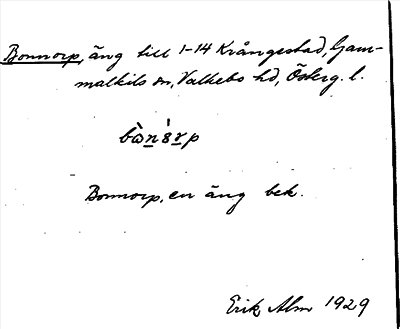 Bonnorp, äng till 1-14 Krångestad, Gam-
malkils sn, Valkebo hd, Österg. l.
Bonnorp, en äng bek.
Erik Alm 1929